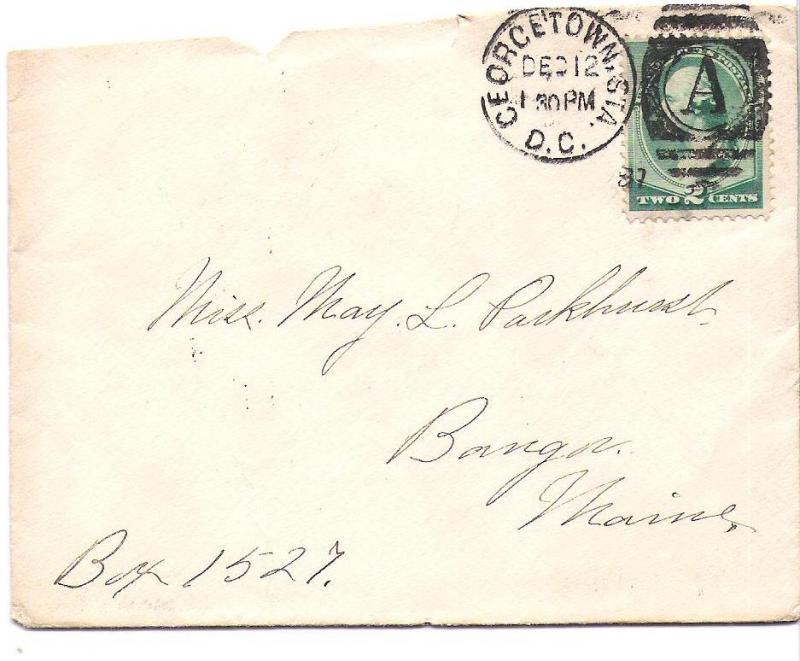 GEORGETOWN, STA.
DEC 12
1 30 PM
D.C.
87
A
TWO 2 CENTS
Miss. May. L. Parkhurst,
Bangor.
Maine,
Box 1527.